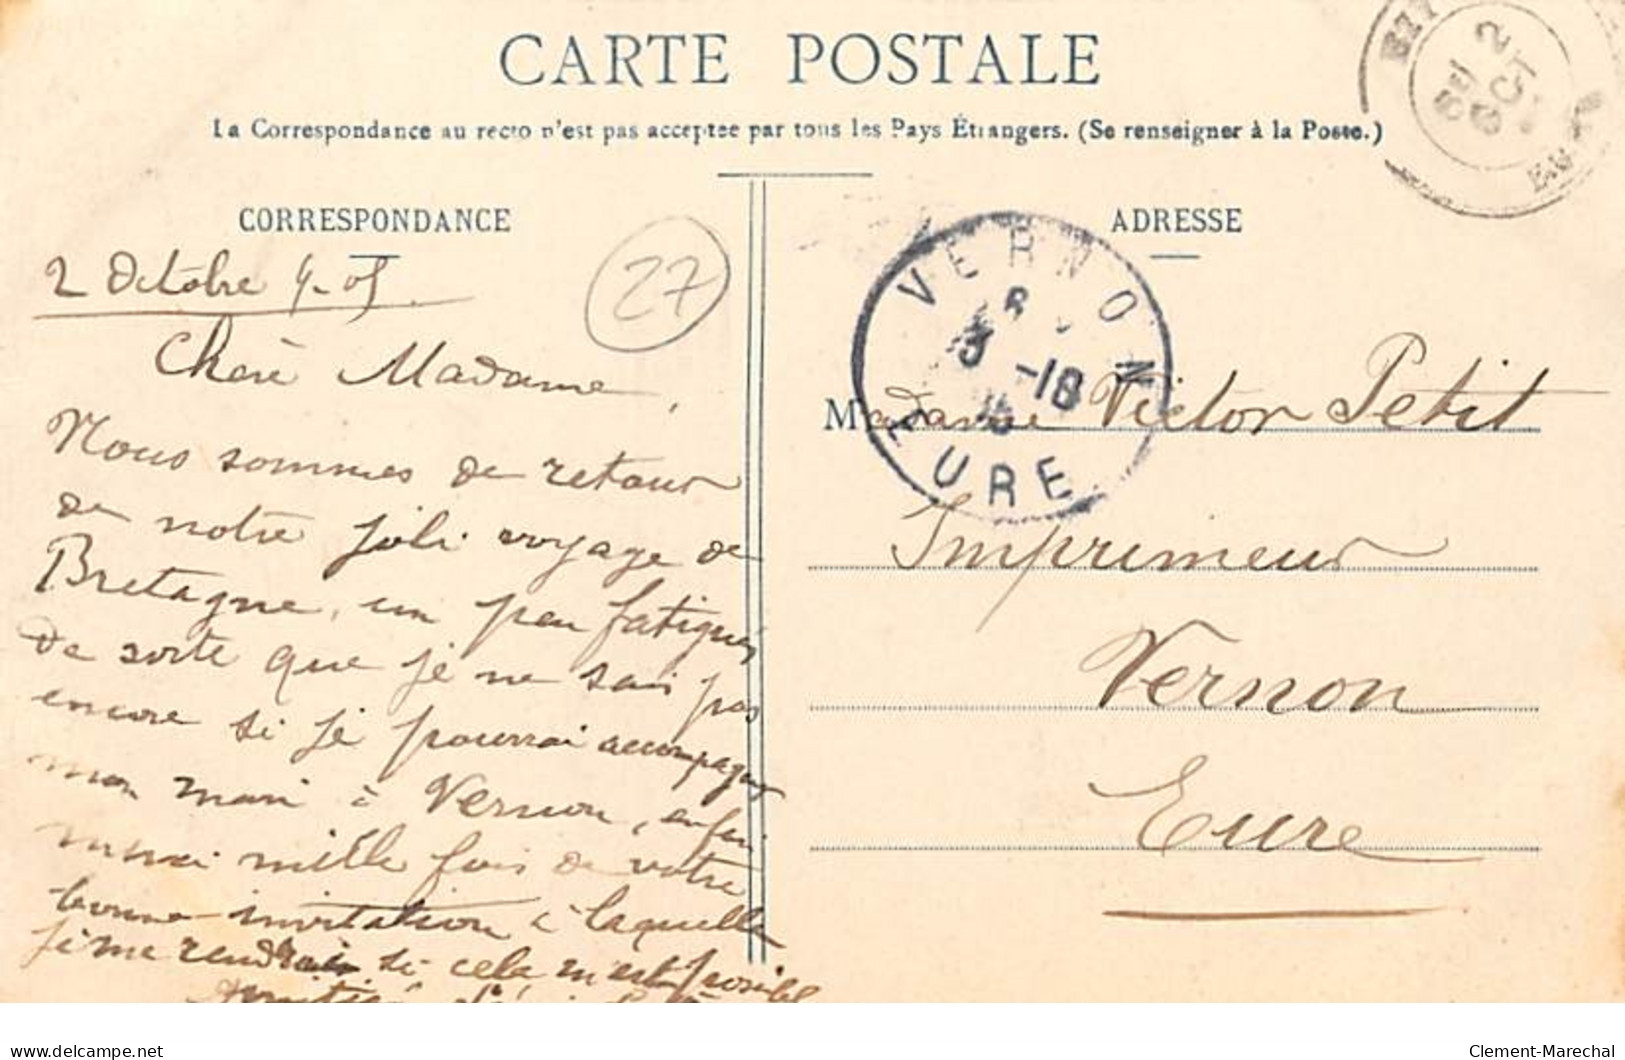 CARTE POSTALE
La Correspondance au recto n'est pas acceptée par tous les Pays Étrangers. (Se renseigner à la Poste.)
CORRESPONDANCE
2 Octobre
27
Chère Madame,
Nous sommes de retour
de notre joli voyage de
Bretagne, un peu fatigués
de sorte que je ne sais pas
encore si je pourrai accompagner
mon mari à Vernon, enfin
merci mille fois de votre
bonne invitation à laquelle
je me rendrai si cela m'est possible
ADRESSE
VERNON
3 -10
EURE
2
OCT
EURE
Madame Victor Petit
Imprimeur
Vernon
Eure
delcampe.net
Clement-Marechal